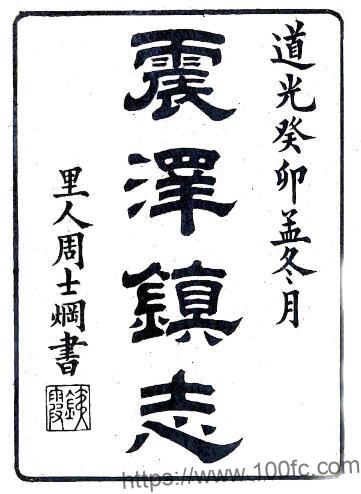 道光癸卯孟冬月
震澤鎮志
里人周士爋書
https://www.100fc.com